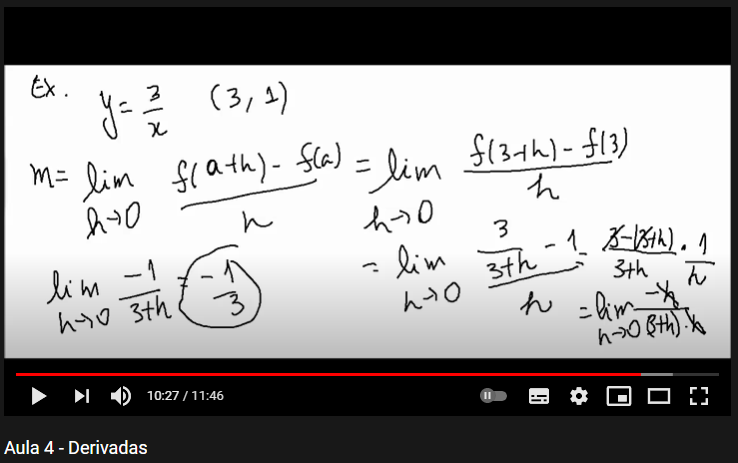 Ex. y = 3/x (3, 1)
m = lim h→0 (f(a+h) - f(a))/h = lim h→0 (f(3+h) - f(3))/h
= lim h→0 (3/(3+h) - 1)/h = (3-(3+h))/(3+h) · 1/h
= lim h→0 -h/((3+h)·h)
lim h→0 -1/(3+h) = -1/3
10:27 / 11:46
Aula 4 - Derivadas